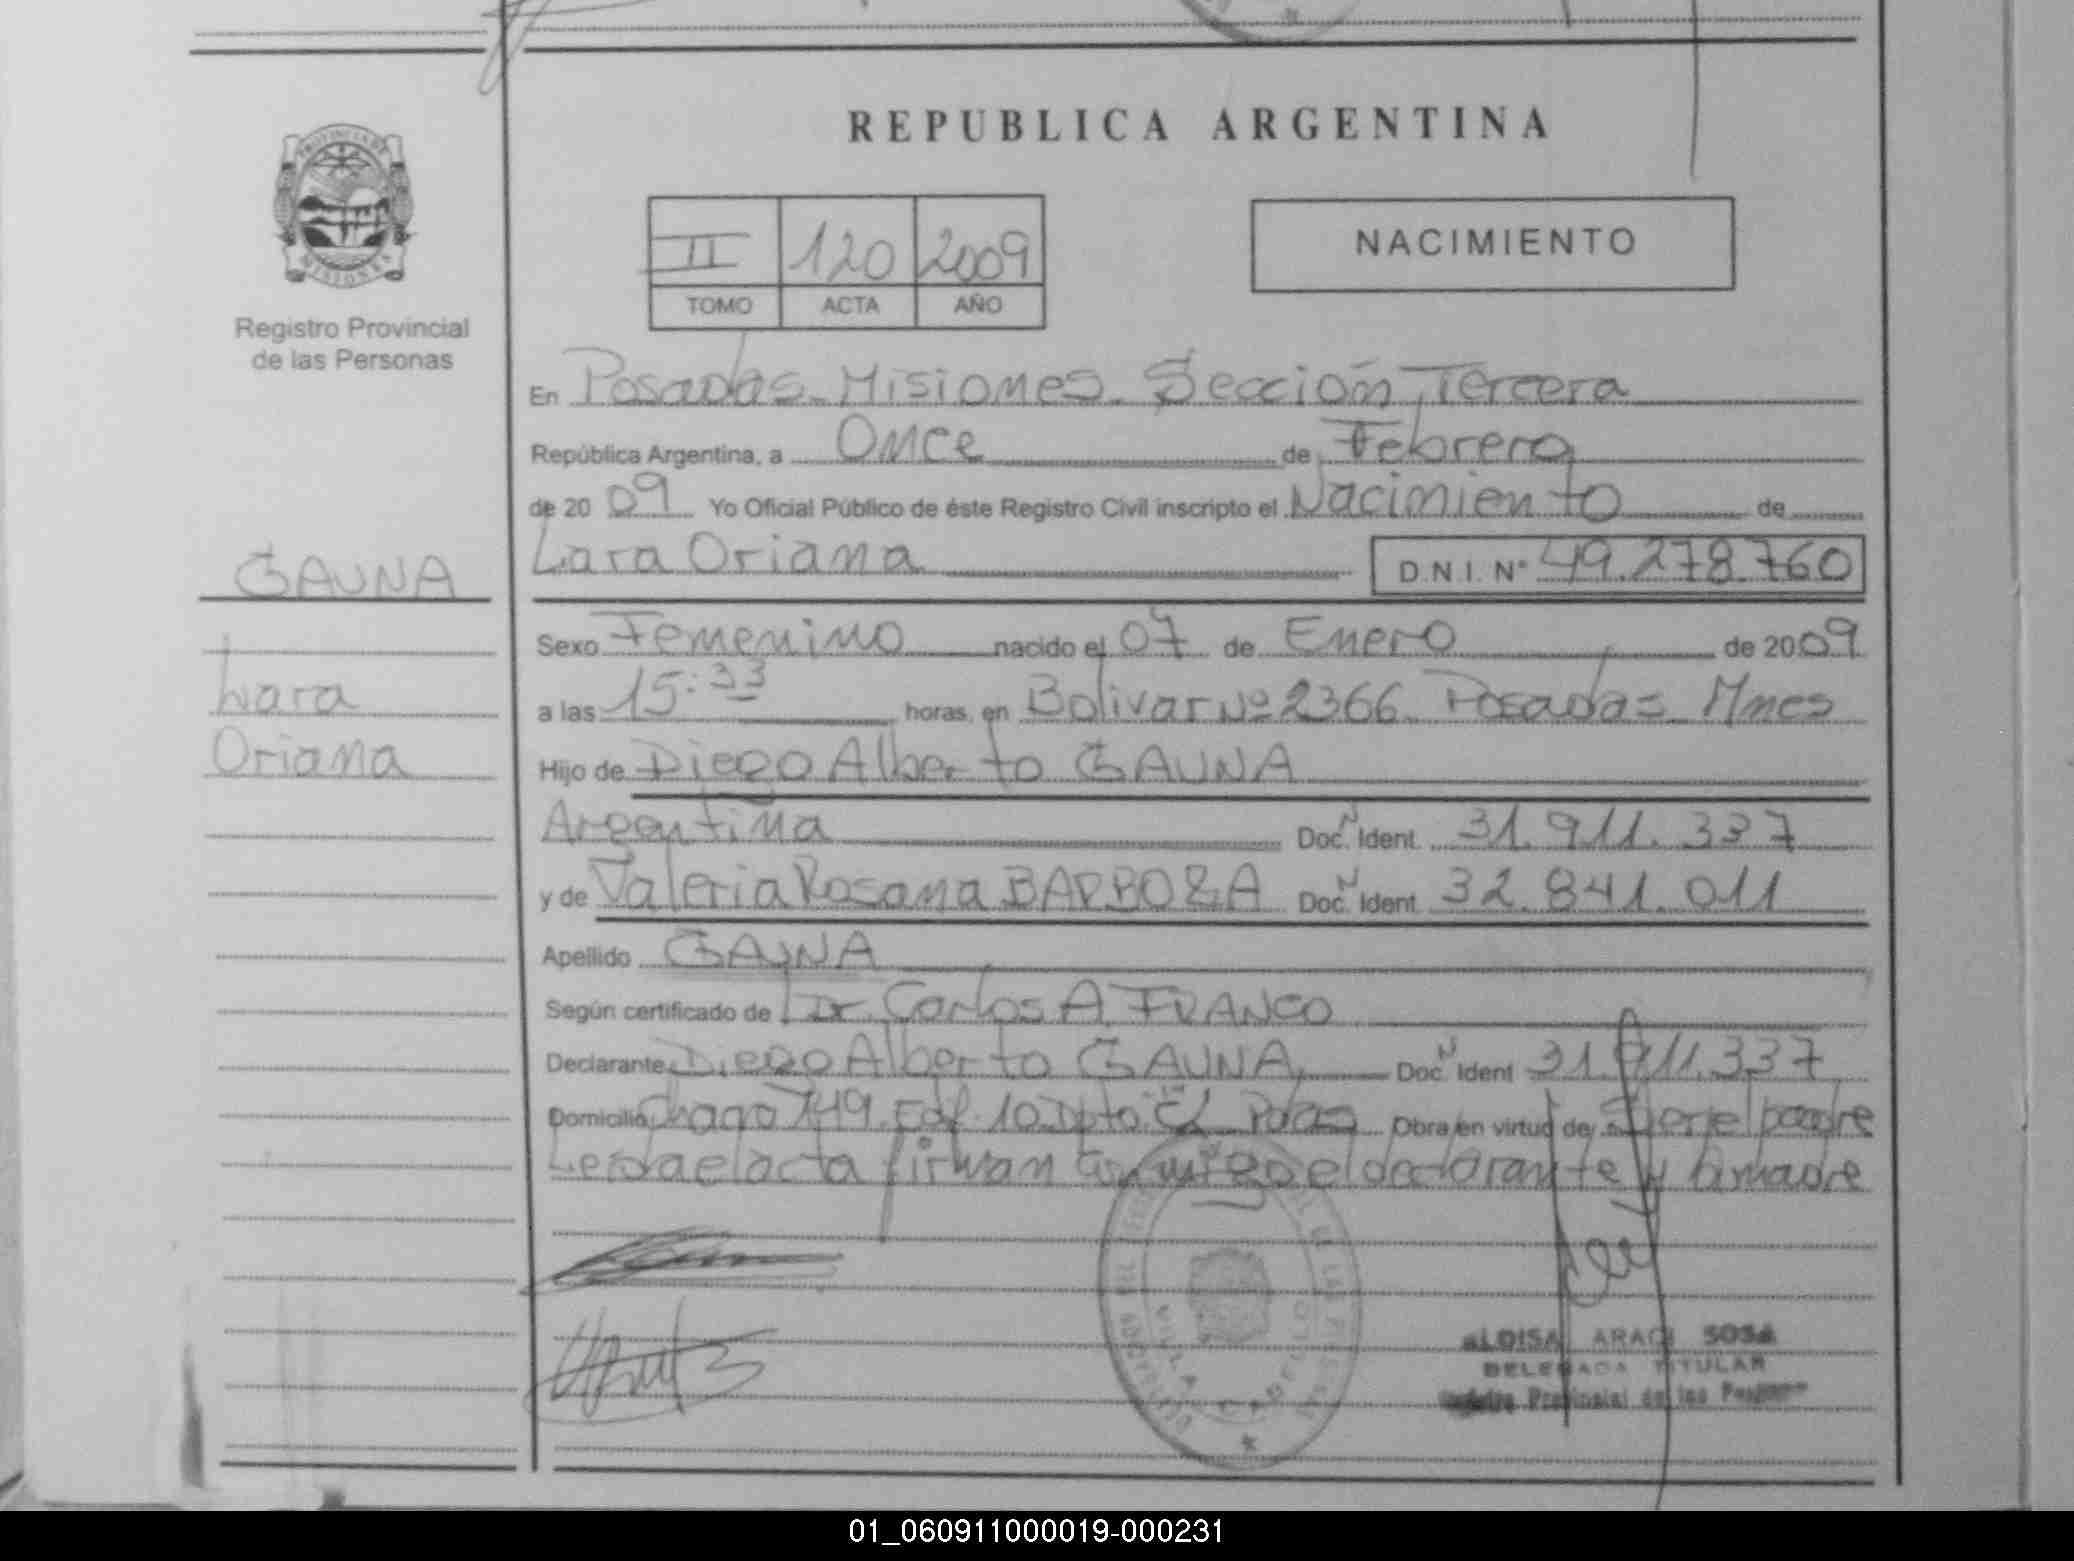 REPUBLICA ARGENTINA
PROVINCIA DE
MISIONES
Registro Provincial
de las Personas
II 120 2009
TOMO ACTA AÑO
NACIMIENTO
En Posadas - Misiones. Sección Tercera
República Argentina, a Once de Febrero
de 2009 Yo Oficial Público de éste Registro Civil inscripto el Nacimiento de
GAUNA
Lara Oriana D.N.I. Nº 49.278.760
Sexo Femenino nacido el 07 de Enero de 2009
Lara
a las 15:33 horas, en Bolivar Nº 2366 Posadas Mnes
Oriana
Hijo de Diego Alberto GAUNA
Argentina Doc. N Ident. 31.911.337
y de Valeria Rosana BARBOZA Doc. N Ident. 32.841.011
Apellido GAUNA
Según certificado de Dr. Carlos A. FRANCO
Declarante Diego Alberto GAUNA, Doc. N Ident 31.911.337
Domicilio Chago 749. Edf. 10 Dpto. "C" Pdas Obra en virtud de Ser el padre
Leida el acta firman conmigo el declarante y la madre
VILLA CABELLO
ALOISA ARACI SOSA
DELEGADA TITULAR
Registro Provincial de las Personas
01_060911000019-000231